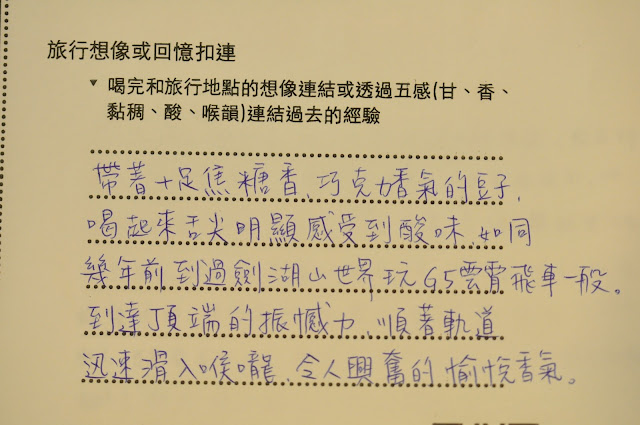 旅行想像或回憶扣連
▼ 喝完和旅行地點的想像連結或透過五感(甘、香、
黏稠、酸、喉韻)連結過去的經驗
帶著十足焦糖香、巧克力香氣的豆子,
喝起來舌尖明顯感受到酸味、如同
幾年前到過劍湖山世界玩G5雲霄飛車一般。
到達頂端的振憾力、順著軌道
迅速滑入喉嚨、令人興奮的愉悅香氣。